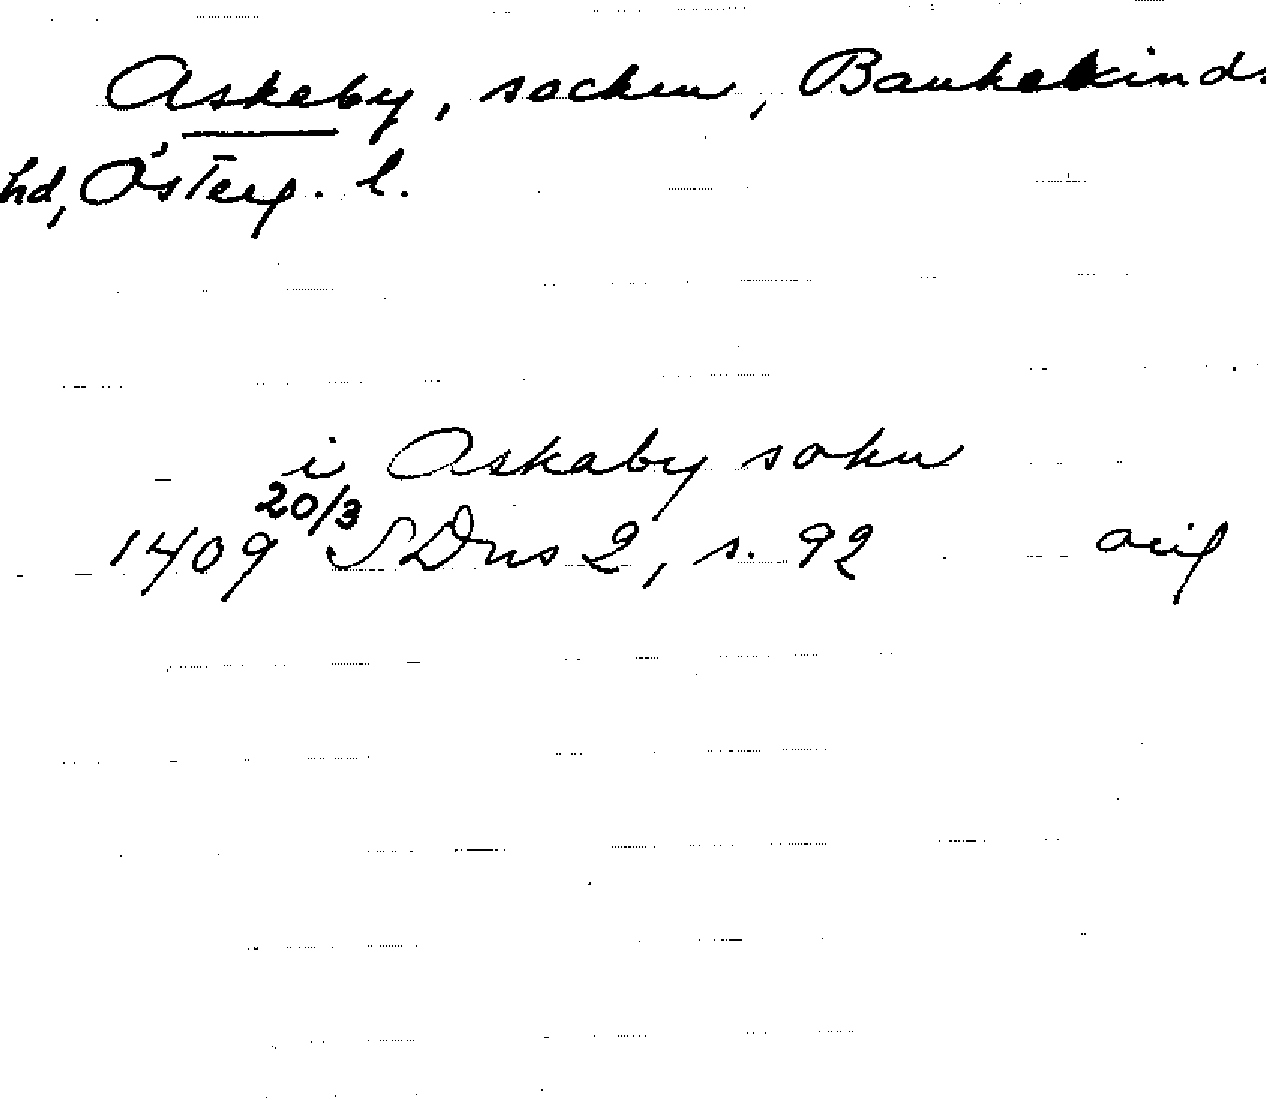 Askeby, socken, Bankekinds
hd, Österg. l.
i Askaby sokn
1409 20/3 SDns 2, s. 92 orig